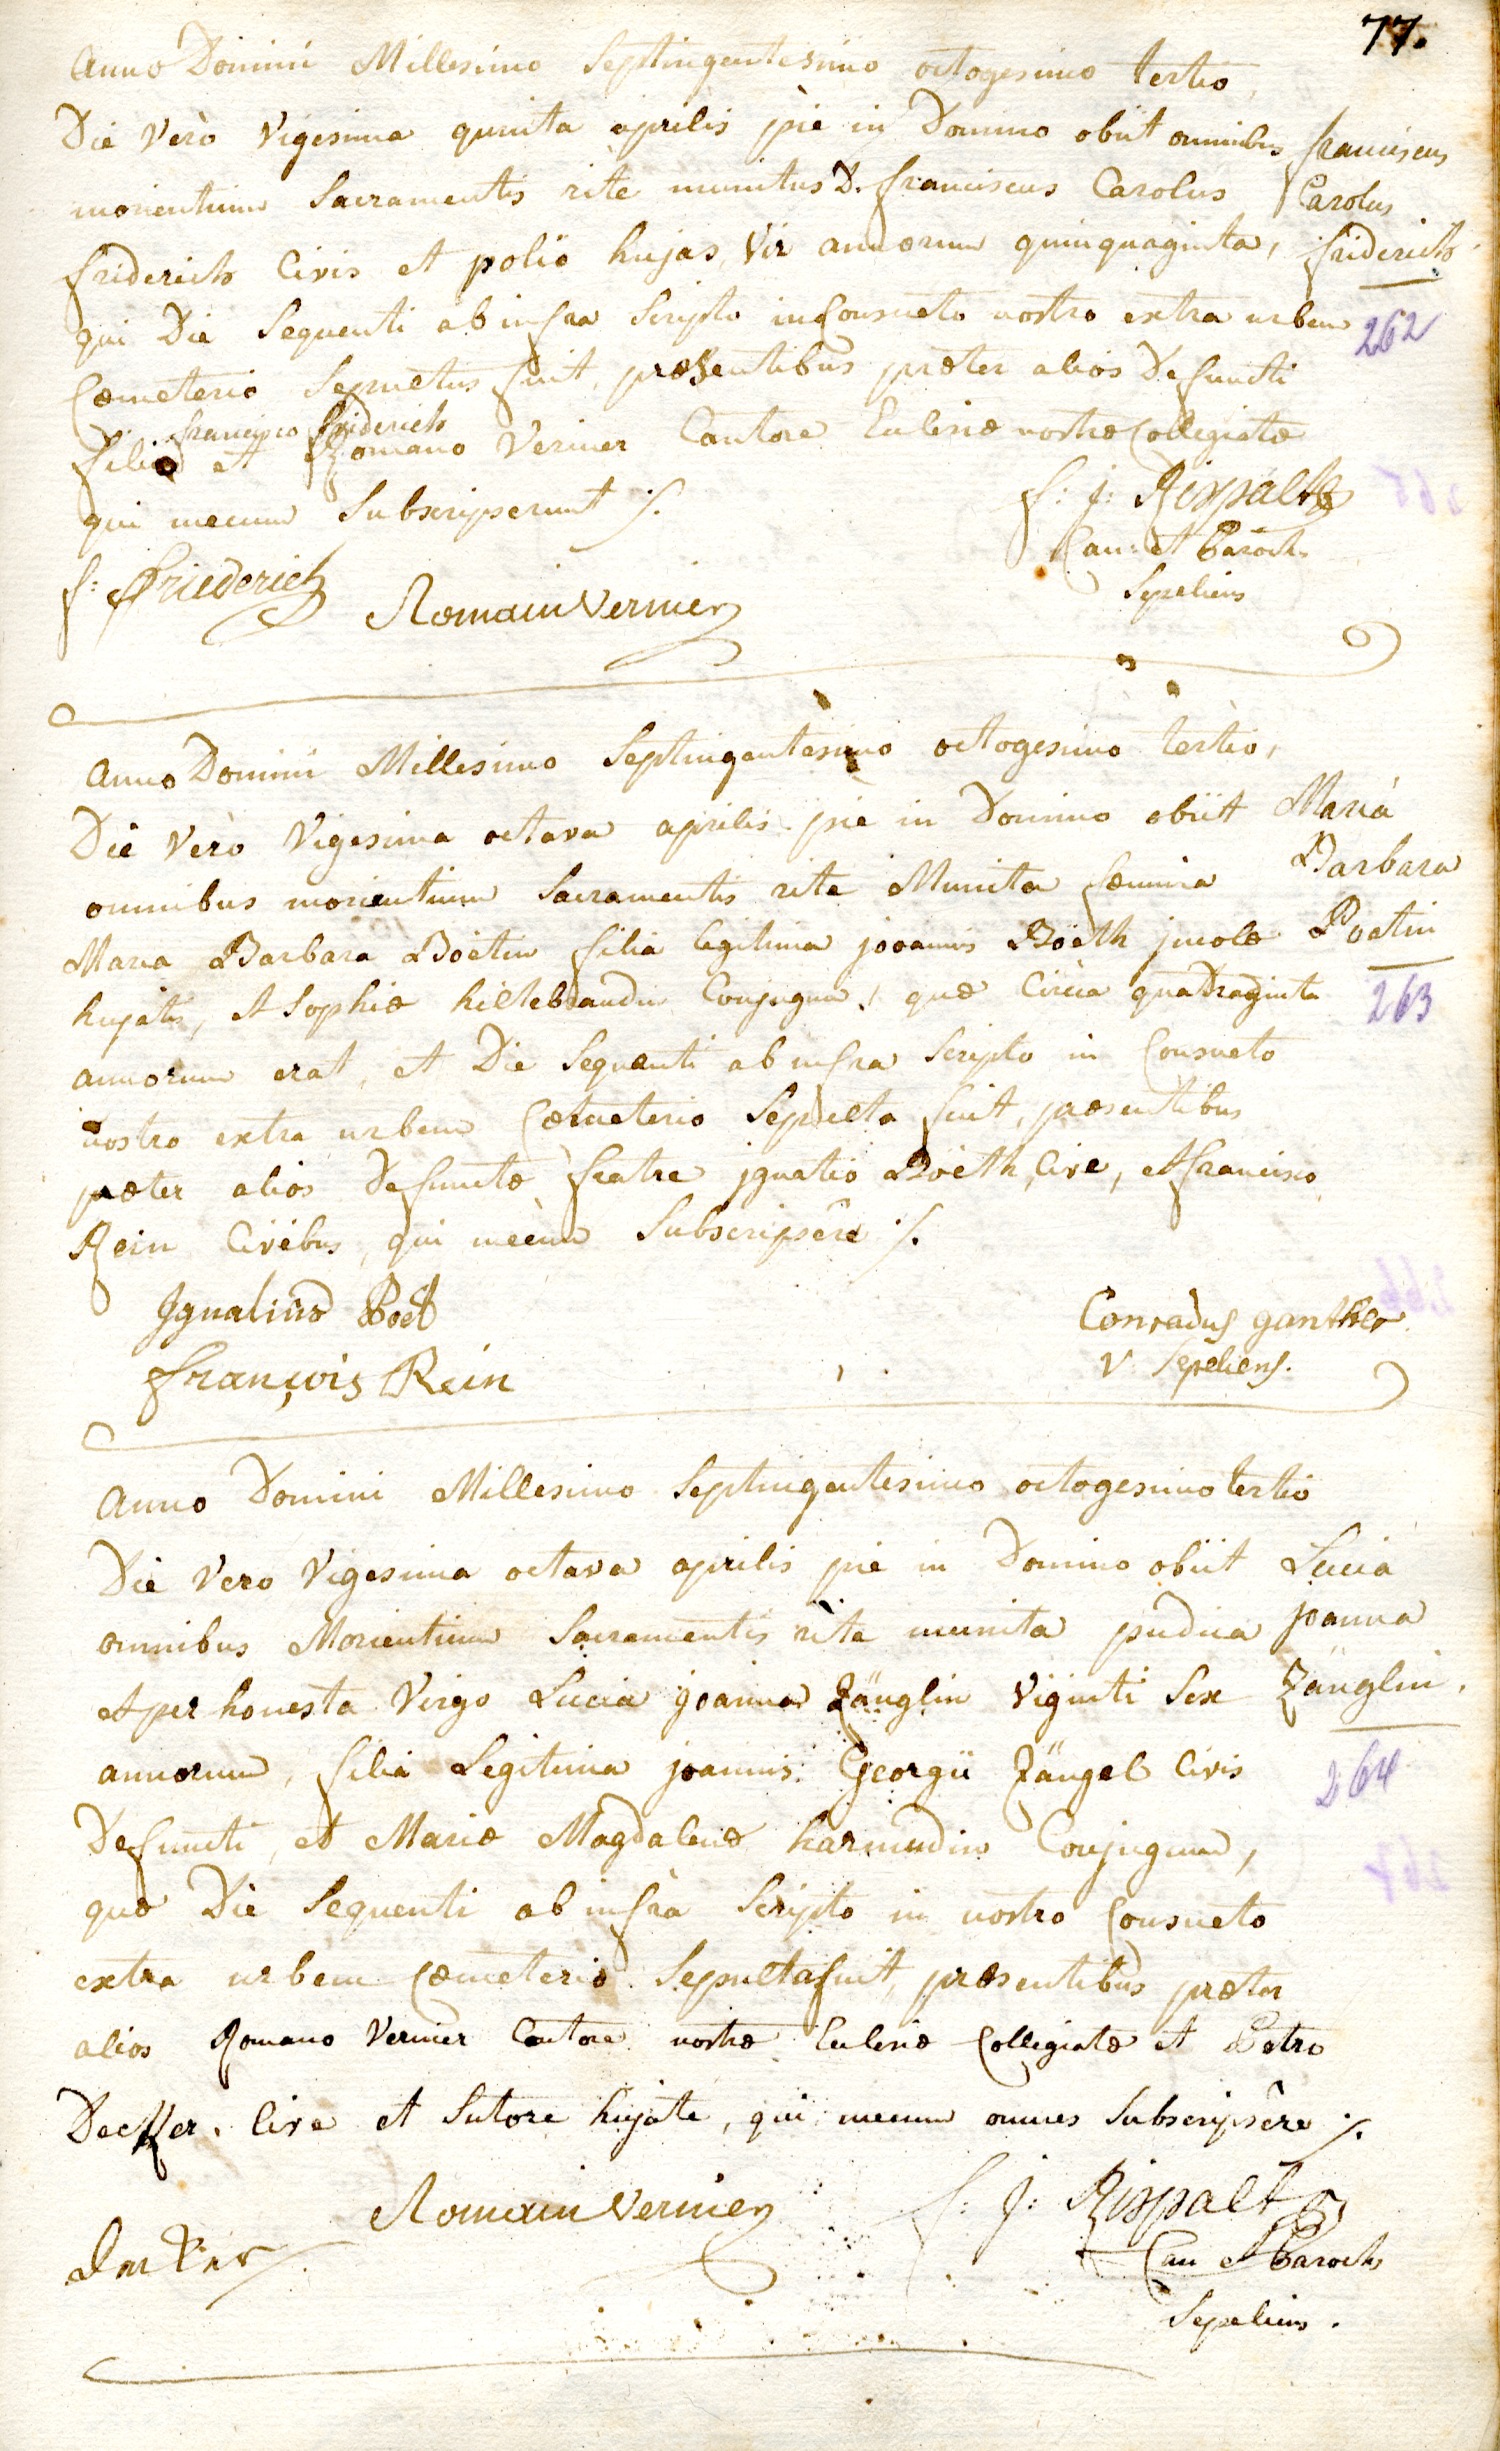 77.
Anno Domini Millesimo Septingentesimo octogesimo tertio,
Die Verò Vigesima quinta aprilis piè in Domino obiit omnibus
morientium Sacramentis ritè munitus D. franciscus Carolus
friderich Civis et polio hujas, Vir annorum quinquaginta,
qui Die Sequenti ab infra Scripto in Consueto nostro extra urbem
Cœmeterio Sepultus fuit, præsentibus præter alios Defuncti
francisco friderich
filio et Romano Vernier Cantore Eclesiæ nostræ Collegiatæ
qui mecum Subscripserunt ./.
franciscus
Carolus
friderich
262
f: j: Rispalt
Can: et Paroch.
Sepeliens
f: friederich
Romain Vernier
Anno Domini Millesimo Septingentesimo octogesimo tertio,
Die Verò Vigesima octava aprilis piè in Domino obiit
omnibus morientium Sacramentis rite Munita fœmina
Maria Barbara Böetin filia legitima jooannis Böeth jncolæ
hujatis, et Sophiæ hiltebrandin Conjugum, quæ Circa quadraginta
annorum erat, et Die Sequenti ab infra Scripto in Consueto
nostro extra urbem Cœmeterio Sepulta fuit, præsentibus
præter alios Defunctæ fratre jgnatio Böeth, Cive, et francisco
Rein Civibus, qui mecum Subscripsêre ./.
Maria
Barbara
Poetin
263
Ignatius Boet
Conradus ganther
V. Sepeliens.
François Rein
Anno Domini Millesimo Septingentesimo octogesimo tertio
Die Vero Vigesima octava aprilis pie in Domino obiit
omnibus Morientium Sacramentis ritè munita pudica
et per honesta Virgo Lucia joanna Zänglin Viginti Sex
annorum, filia Legitima joannis Georgii Zängel Civis
Defuncti, et Mariæ Magdalenæ harmudin Conjugum,
quæ Die Sequenti ab infrà Scripto in nostro Consueto
extra urbem Cœmeterio Sepulta fuit, præsentibus præter
alios Romano Vernier Cantore nostræ Eclesiæ Collegiatæ et Petro
Decker. Cive et Sutore hujate, qui mecum omnes Subscripsêre ./.
Lucia
joanna
Zänglin.
264
Romain Vernier
f: j: Rispalt
Can et Paroch
Sepeliens.